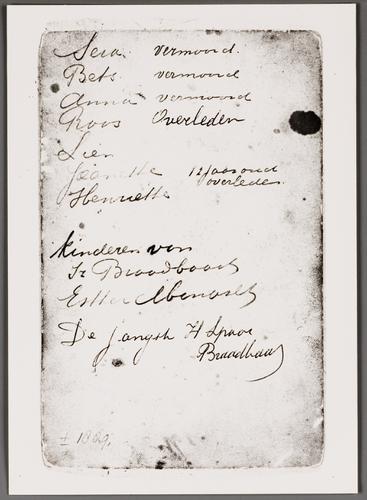 Sera vermoord.
Bets vermoord
Anna vermoord
Roos Overleden
Lien
Jeanette 12 jaar oud
overleden.
Henriette
Kinderen van
Is Broodbaard
Esther
De Jongste H Spree
Broodbaard
± 1889.